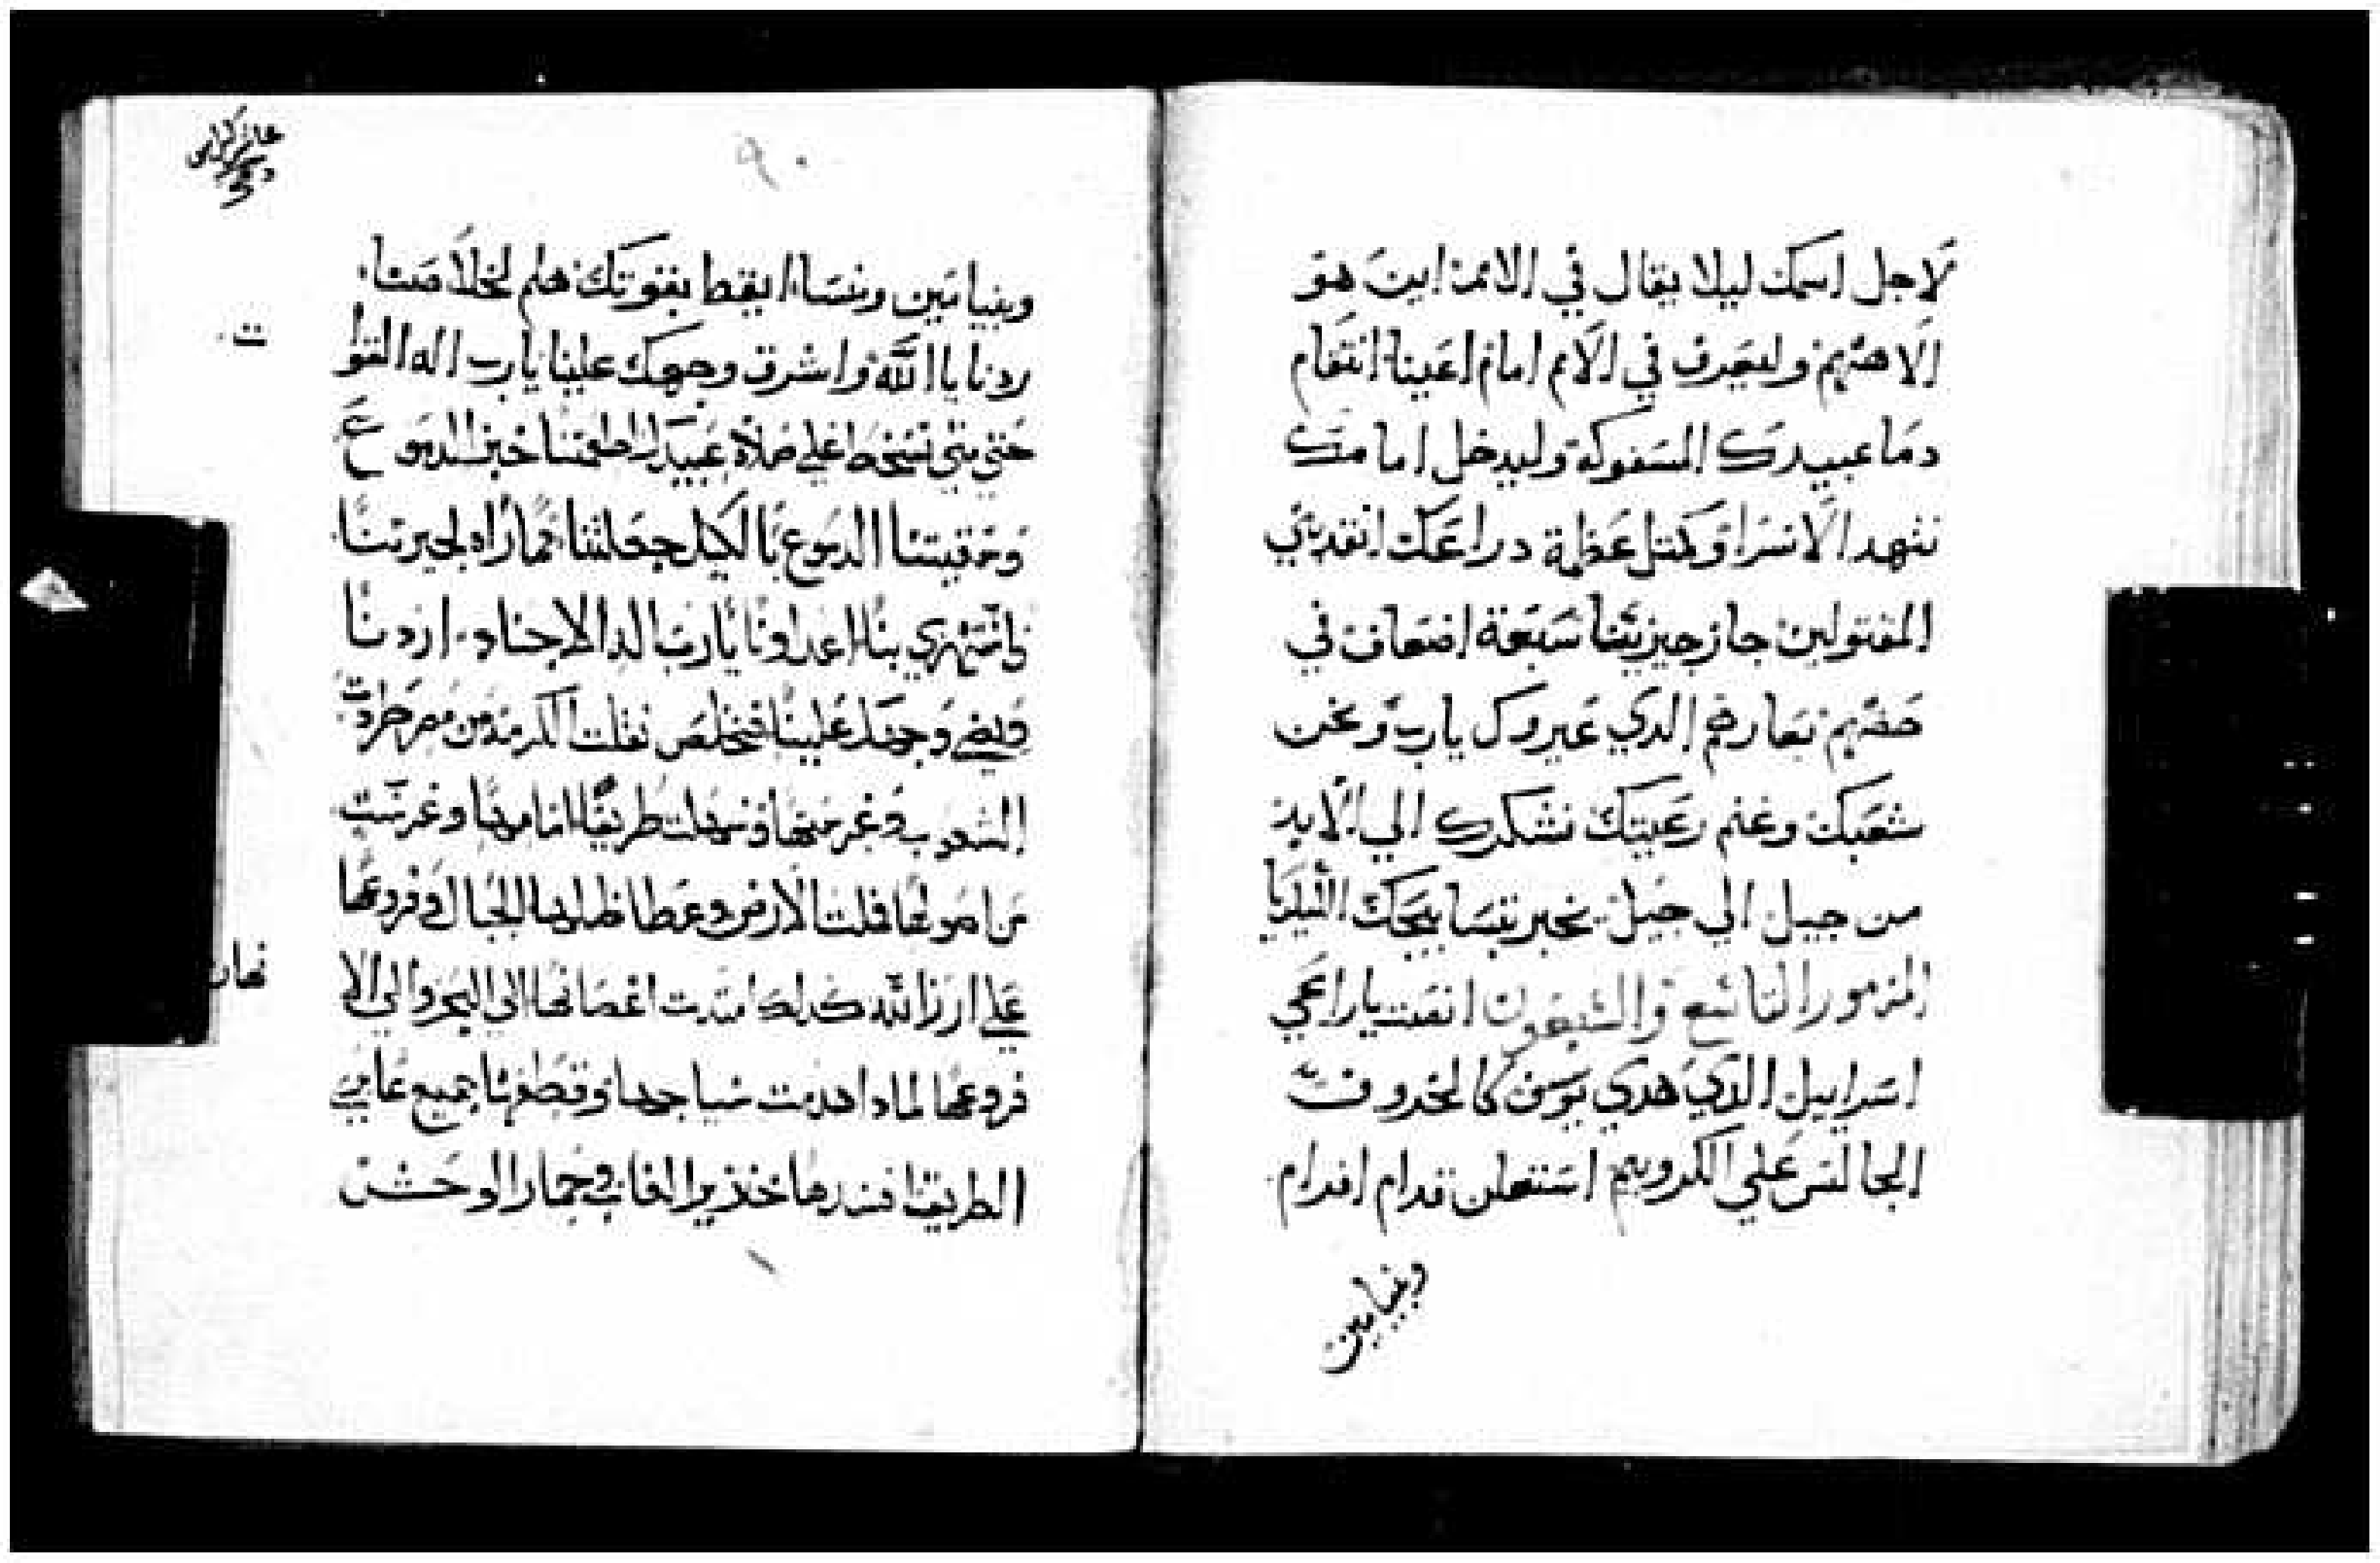 لاجل اسمك ليلا يقال في الامم اين هو
الاههم وليعرف في الامم امام اعيننا انتقام
دما عبيدك المسفوكة وليدخل امامك
تنهد الاسرا وكمتل عظمة دراعك انقد بني
المقتولين جاز جيريننا سبعة اضعاف في
حضنهم تعارهم الدي عيروك يارب ونحن
شعبك وغنم رعيتك نشكرك الي الابد
من جيل الي جيل نخبر بتسابيحك الليلويا
المزمور التاسع والسبعون انصت ياراعي
اسراييل الدي هدي يوسف كالخروف
الجالس علي الكروبيم استعلن قدام افرام
وبنيامين
٩٠
وبنيامين ومنسا ايقظ بقوتك هلم لخلاصنا
ردنا يا الله واشرق وجهك علينا يارب اله القوا
ت
حتي متي تسخط علي صلاة عبيدك اطعمتنا خبز الدموع
وسقيتنا الدموع بالكيل جعلتنا مماراه لجيرتنا
استهزي بنا اعداونا يارب اله الاجناد اردنا
ويضي وجهك علينا فنخلص نقلت الكرمة من مصر طردت
الشعوب وغرستها وسهلت طريقا امامها وغرست
اصولها فملت الارض وغطا ظلها الجبال وفروعها
علي ارز الله كدلك امتدت اغصانها الي البحر والي الا
نهار
فروعها لمادا هدمت سياجها وقطفها جميع عابري
الطريق افسدها خنزير الغاب وحمار الوحش